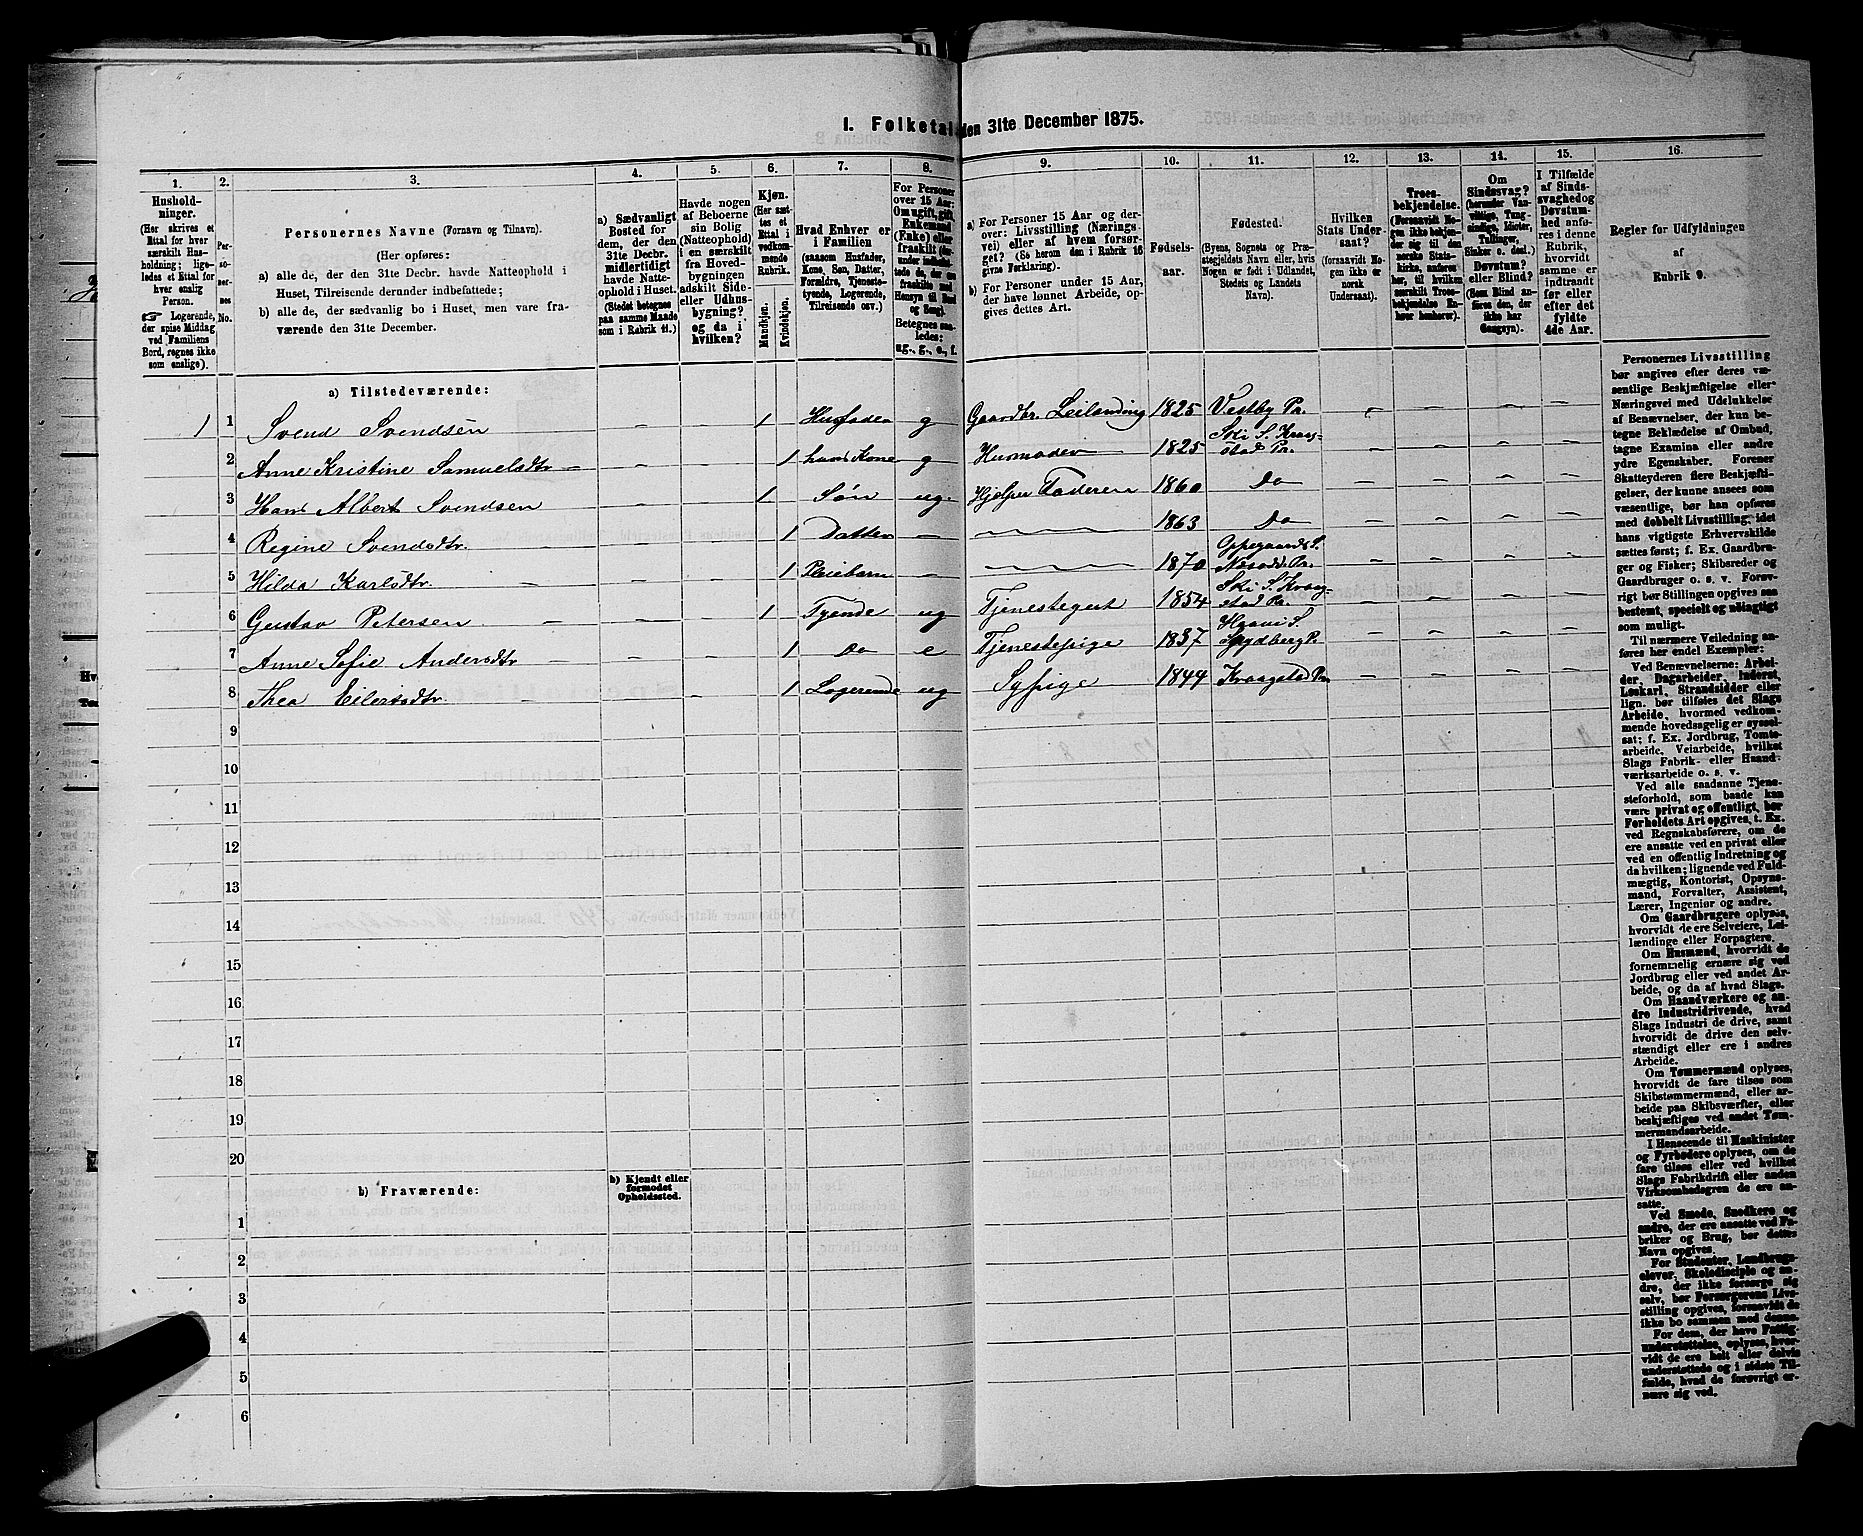 I. Folketal den 31te December 1875.
1.
Hushold-
ninger.
(Her skrives et
Ettal for hver
særskilt Hus-
holdning; lige-
ledes et Ettal for
hver enslig
Person.
☞ Logerende,
der spise Middag
ved Familiens
Bord, regnes ikke
som enslige).
2.
Per-
so-
ner-
nes
No.
3.
Personernes Navne (Fornavn og Tilnavn).
(Her opføres:
a) alle de, der den 31te Decbr. havde Natteophold i
Huset, Tilreisende derunder indbefattede;
b) alle de, der sædvanlig bo i Huset, men vare fra-
værende den 31te December.
4.
a) Sædvanligt
Bosted for
dem, der den
31te Decbr.
midlertidigt
havde Natte-
ophold i Huset.
(Stedet betegnes
paa samme Maade
som i Rubrik 11.)
5.
Havde nogen
af Beboerne
sin Bolig
(Natteophold)
i en særskilt
fra Hoved-
bygningen
adskilt Side-
eller Udhus-
bygning?
og da i
hvilken?
6.
Kjøn.
(Her sæt-
tes et
Ettal i
vedkom-
mende
Rubrik.
Mandkjøn.
Kvindekjøn.
7.
Hvad Enhver er
i Familien
(saasom Husfader,
Kone, Søn, Datter,
Forældre, Tjeneste-
tyende, Logerende,
Tilreisende osv.)
8.
For Personer
over 15 Aar:
Om ugift, gift,
Enkemand
(Enke) eller
fraskilt
Betegnes saa-
ledes:
ug., g., e., f.
9.
a) For Personer 15 Aar og der-
over: Livsstilling (Nærings-
vei) eller af hvem forsør-
get (Se herom den i Rubrik 16
givne Forklaring).
b) For Personer under 15 Aar,
der have lønnet Arbeide, op-
gives dettes Art.
10.
Fødsels-
aar.
11.
Fødested.
(Byens, Sognets og Præ-
stegjeldets Navn eller, hvis
Nogen er født i Udlandet,
Stedets og Landets
Navn).
12.
Hvilken
Stats Under-
saat?
(forsaavidt No-
gen ikke er
norsk
Undersaat).
13.
Troes-
bekjendelse.
(Forsaavidt No-
gen ikke bekjen-
der sig til den
norske Stats-
kirke, anføres
her, til hvilken
særskilt Troes-
bekjendelse En-
hver henhører).
14.
Om
Sindssvag?
(herunder Van-
vittige, Tung-
sindige, Idioter,
Tullinger,
Sinker o. desl.)
Døvstum?
eller Blind?
(Som Blind an-
føres den, der
ikke har
Gangsyn).
15.
I Tilfælde
af Sinds-
svaghed og
Døvstum-
hed anfø-
res i denne
Rubrik,
hvorvidt
samme er
indtraadt
før eller
efter det
fyldte
4de Aar.
16.
Regler for Udfyldningen
af
Rubrik 9.
a) Tilstedeværende:
1 1 Svend Svendsen — — 1 Husfader g Gaardbr. Leilænding 1825 Vestby Pr. — — — —
2 Anne Kristine Samuelsdtr — — — 1 hans Kone g Husmoder 1825 Ski S. Kraag-
stad Pr. — — — —
3 Hans Albert Svendsen — — 1 Søn ug. Hjelper Faderen 1860 Do — — — —
4 Regine Svendsdtr. — — — 1 Datter — — 1863 Do — — — —
5 Hilda Karlsdtr. — — — 1 Pleiebarn — — 1870 Oppegaards S.
Nesodd. Pr. — — — —
6 Gustav Petersen — — — 1 Tyende ug Tjenestegut 1854 Ski S. Kraag-
stad Pr. — — — —
7 Anne Sofie Andersdtr — — — 1 Do e Tjenestepige 1837
Spydberg Pr. — — — —
8 Thea Eilertsdtr. — — — 1 Logerende ug Sypige 1844 Kraagstad Pr. — — — —
9
10
11
12
13
14
15
16
17
18
19
20
b) Fraværende:
b) Kjendt eller
formodet
Opholdssted.
1
2
3
4
5
6
Personernes Livsstilling
bør angives efter deres væ-
sentlige Beskjæftigelse eller
Næringsvei med Udelukkelse
af Benævnelser, der kun be-
tegne Beklædelse af Ombud,
tagne Examina eller andre
ydre Egenskaber. Forener
Skatteyderen flere Beskjæfti-
gelser, der kunne ansees som
væsentlige, bør han opføres
med dobbelt Livsstilling, idet
hans vigtigste Erhvervskilde
sættes først; f. Ex. Gaardbru-
ger og Fisker; Skibsreder og
Gaardbruger o. s. v. Forøv-
rigt bør Stillingen opgives saa
bestemt, specielt og nøiagtigt
som muligt.
Til nærmere Veiledning an-
føres her endel Exempler:
Ved Benævnelserne: Arbei-
der, Dagarbeider, Inderst,
Løskarl, Strandsidder eller
lign. bør tilføies det Slags
Arbeide, hvormed vedkom-
mende hovedsagelig er syssel-
sat; f. Ex. Jordbrug, Tomte-
arbeide, Veiarbeide, hvilket
Slags Fabrik- eller Haand-
værksarbeide o. s. v.
Ved alle saadanne Tjene-
steforhold, som baade kan
være privat og offentligt, bør
Forholdets Art opgives, t. Ex.
ved Regnskabsførere, om de
ere ansatte ved en privat eller
ved en offentlig Indretning og
da hvilken; lignende ved Fuld-
mægtig, Kontorist, Opsyns-
mand, Forvalter, Assistent,
Lærer, Ingeniør og andre.
Om Gaardbrugere oplyses,
hvorvidt de ere Selveiere, Lei-
lændinge eller Forpagtere.
Om Husmænd, hvorvidt de
fornemmelig ernære sig ved
Jordbrug eller ved andet Ar-
beide, og da af hvad Slags.
Om Haandværkere og an-
dre Industridrivende, hvad
Slags Industri de drive, samt
hvorvidt de drive den selv-
stændigt eller ere i andres
Arbeide.
Om Tømmermænd oplyses,
hvorvidt de fare tilsøs som
Skibstømmermænd, eller ar-
beide paa Skibsværfter, eller
beskjæftiges ved andet Tøm-
mermandsarbeide.
I Henseende til Maskinister
og Fyrbødere oplyses, om de
fare tilsøs eller ved hvilket
Slags Fabrikdrift eller anden
Virksomhedsgren de ere an-
satte.
Ved Smede, Snedkere og
andre, der ere ansatte ved Fa-
briker og Brug, bør dettes
Navn opgives.
For Studenter, Landbrugs-
elever, Skoledisciple og an-
dre, der ikke forsørge sig
selv, bør Forsørgerens Livs-
stilling opgives, forsaavidt de
ikke bo sammen med denne.
For dem, der have Fattig-
understøttelse, oplyses, hvor-
vidt de ere helt eller delvis
understøttede og i sidste Til-
fælde, hvad de forøvrigt er-
nære sig ved.